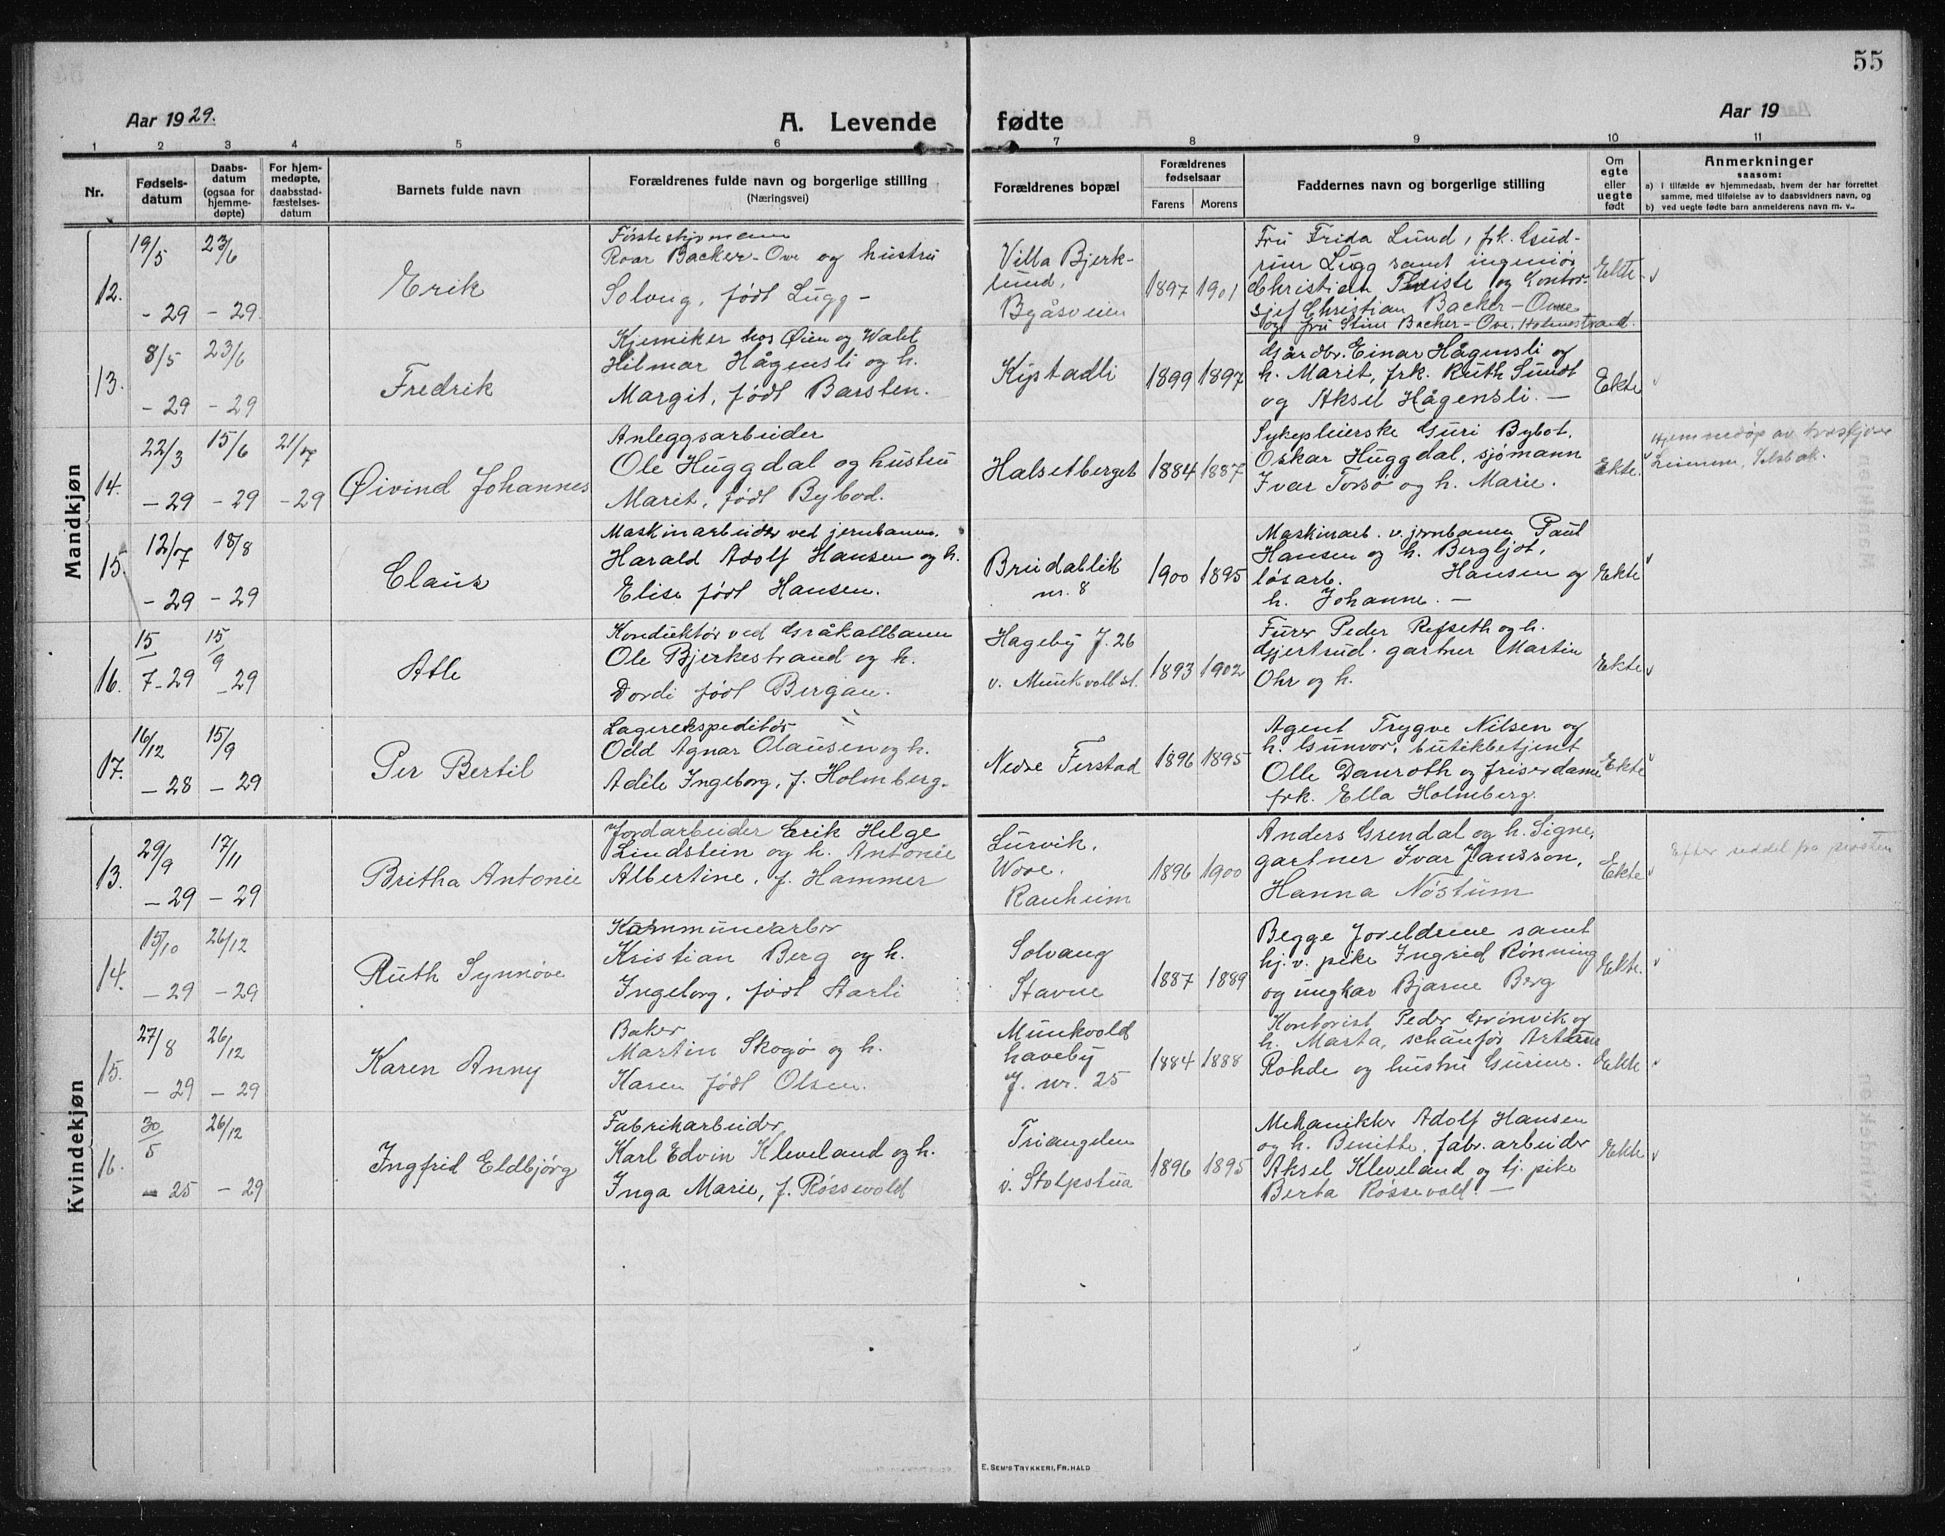 55
Aar 1929.
A. Levende fødte
Aar 19
1 2 3 4 5 6 7 8 9 10 11
Nr.
Fødsels-
datum
Daabs-
datum
(ogsaa for
hjemme-
døpte)
For hjem-
medøpte,
daabsstad-
fæstelses-
datum
Barnets fulde navn
Forældrenes fulde navn og borgerlige stilling
(Næringsvei)
Forældrenes bopæl
Forældrenes
fødselsaar
Farens Morens
Faddernes navn og borgerlige stilling
Om
egte
eller
uegte
født
Anmerkninger
saasom:
a) i tilfælde av hjemmedaab, hvem der har forrettet
samme, med tilføielse av to daabsvidners navn, og
b) ved uegte fødte barn anmelderens navn m. v..
Mandkjøn
12.
19/5
- 29
23/6
- 29.
Erik
Roar Backer-Ove og hustru
Solveig, født Lugg -
Villa Bjerk-
lund,
Byåsveien
1897 1901
Fru Frida Lund, frk. Gud-
run Lugg samt ingeniør
Christian Theiste og Kontor-
sjef Christian Backer-Ove
og fru Stine Backer-Ove, Holmestrand.
Ekte
13.
8/5
- 29
23/6
- 29
Fredrik
Kjemiker hos Øien og Wahl
Hilmar Hågensli og h.
Margit, født Barsten.
Kystadli
1899 1897
Gårdbr. Einar Hågensli og
h. Marit, frk. Ruth Sundt
og Aksel Hågensli. -
Ekte
14.
22/3
- 29
15/6
- 29
21/07
- 29
Øivind Johannes
Anleggsarbeider
Ole Huggdal og hustru
Marit, født Bybod.
Halsetberget
1884 1887
Sykepleierske Guri Bybot.
Oskar Huggdal, sjømann
Ivar Torsø og h. Marie.
Ekte.
Hjemmedøp av
15.
12/07
- 29
18/8
- 29
Claus
Maskinarbeider ved jernbanen.
Harald Adolf Hansen og h.
Elise født Hansen.
Brudablik
nr. 8
1900 1895
Maskinarb. v. jernbanen Paul
Hansen og h. Bergljot,
løsarb. Hansen og
h. Johanne. -
Ekte
16.
15
7 - 29
15
9
- 29
Atle
Konduktør ved Gråkallbanen
Ole Bjerkestrand og h.
Dordi født Bergan.
Hageby J. 26
v. Munkvoll st.
1893 1902
Furer Peder Refseth og h.
Gjertrud. gartner Martin
Ohr og h.
Ekte
17.
16/12
- 28
15/9
- 29
Per Bertil
Lagerekspeditør
Odd Agnar Olausen og h.
Adèle Ingeborg, f. Holmberg.
Nedre Ferstad
1896 1895
Agent Trygve Nilsen og
h. Gunvor, butikbetjent
Olle Danroth og friserdame
frk. Ella Holmberg.
Ekte
Kvindekjøn
13.
29/9
- 29
17/11
- 29
Britha Antonie
Jordarbeider Erik Helge
Lindstein og h. Antonie
Albertine, f. Hammer
Lurvik,
Være.
Ranheim
1896 1900
Anders Grendal og h. Signe,
gartner Ivar Jansson,
Hanna Nøstum
Ekte
Efter seddel fra presten
14.
15/10
- 29
26/12
- 29
Ruth Synnøve
Kommunearber
Kristian Berg og h.
Ingeborg, født Aarli
Solvang
Stavne
1887 1889
Begge foreldrene samt
hj. v. pike Ingrid Rønning
og ungkar Bjarne Berg
Ekte.
15.
27/8
- 29
26/12
- 29
Karen Anny
Baker
Martin Skogø og h.
Karen født Olsen.
Munkvold
haveby
J. nr. 25
1884 1888
Kontorist Peder Grønvik og
h. Marta, schaufør
Rohde og hustru Gurine.
Ekte
16.
30
5
- 25
26/12
- 29
Ingfrid Eldbjørg
Fabrikarbeider,
Karl Edvin Kleveland og h.
Inga Marie, f. Røssevold
Triangelen
v. Stolpstua
1896 1895
Mekanikker Adolf Hansen
og h. Benitte, fabr. arbeider
Aksel Kleveland og tj. pike
Berta Røssevold. -
Ekte
E. Sem's Trykkeri, Fr.hald